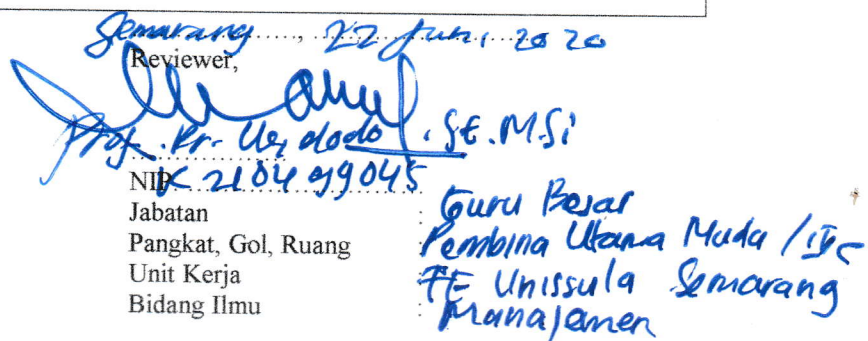 Semarang....., 22 Juni 2020
Reviewer,
Prof. Dr. Widodo, SE. M.Si
NIK 210499045
Jabatan : Guru Besar
Pangkat, Gol, Ruang : Pembina Utama Muda / IVc
Unit Kerja : FE Unissula Semarang
Bidang Ilmu : Manajemen